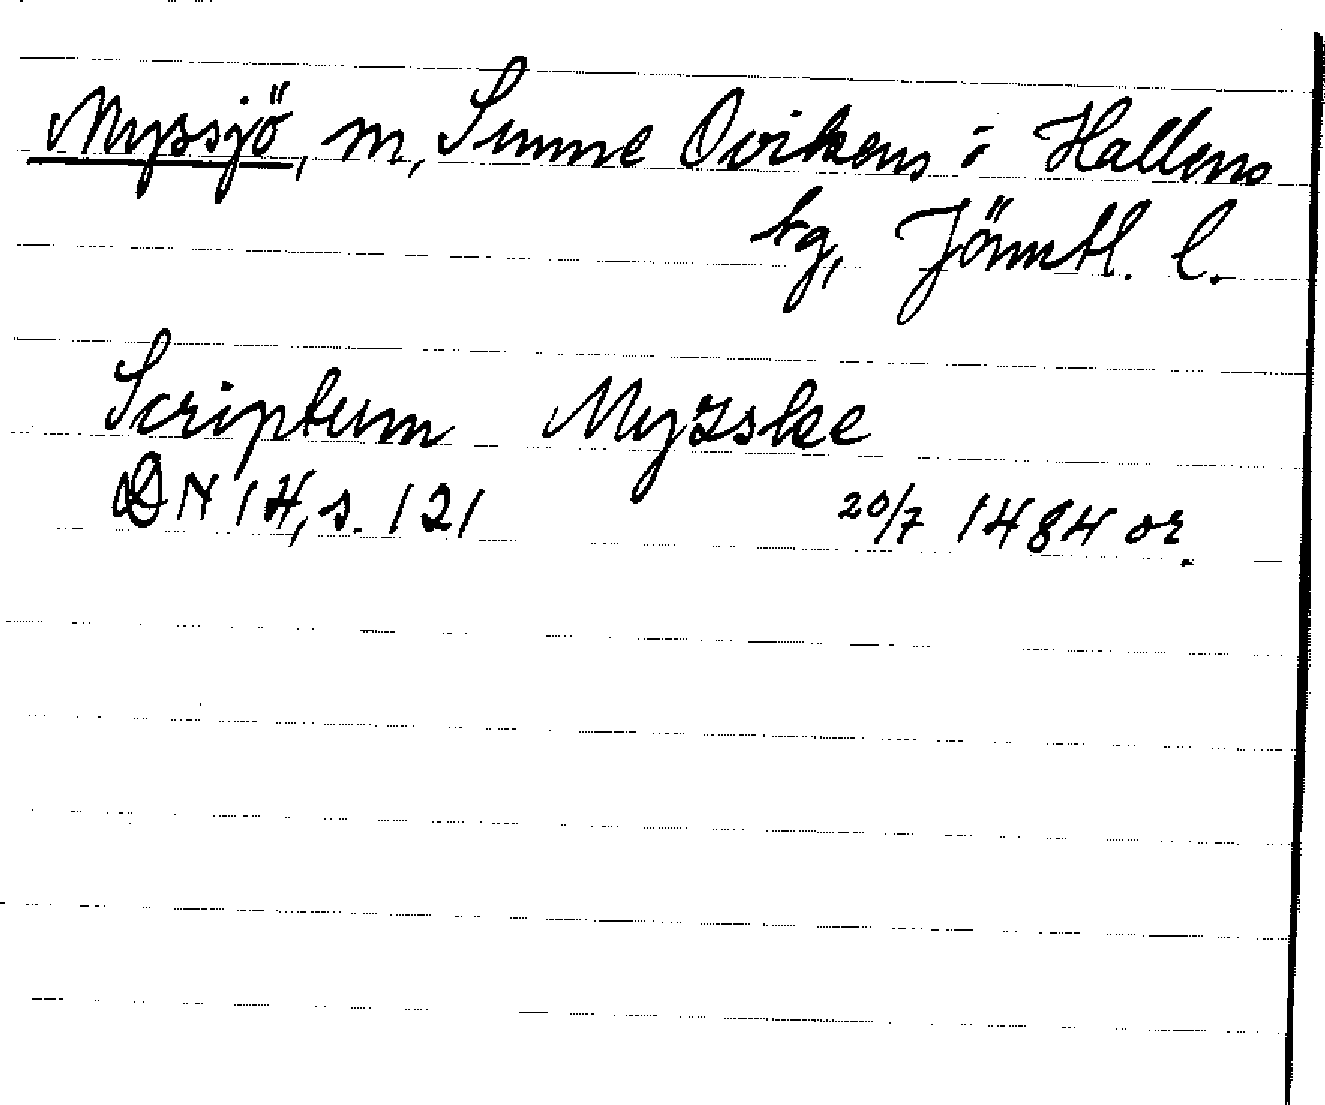 Myssjö, m, Sunne Ovikens o Hallens
tg, Jämtl. l.
Scriptum Myzske
DN 14, s. 121 20/7 1484 or.